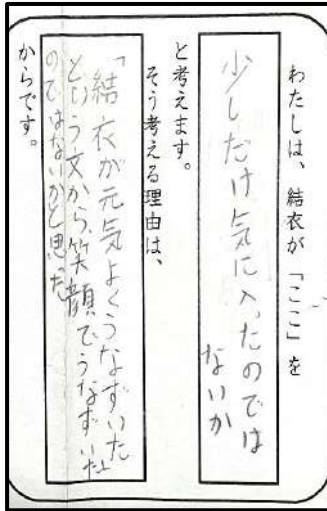 わたしは、結衣が「ここ」を
少しだけ気に入ったのでは
ないか
と考えます。
そう考える理由は、
「結衣が元気よくうなずいた
という文から、笑顔でうなずいた
のではないかと思った
からです。